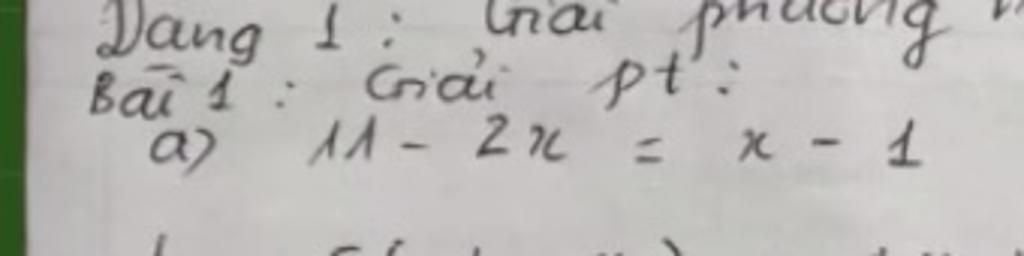 Dạng 1 : Giải phương
Bài 1 : Giải pt :
a) 11 - 2x = x - 1